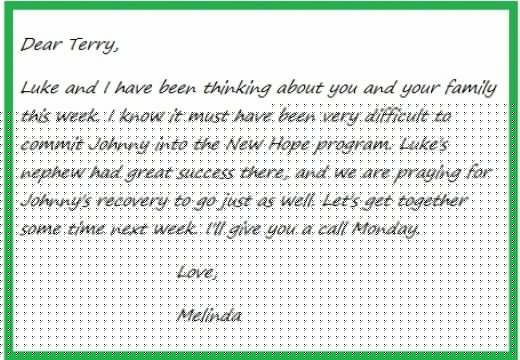 Dear Terry,
Luke and I have been thinking about you and your family
this week. I know it must have been very difficult to
commit Johnny into the New Hope program. Luke's
nephew had great success there, and we are praying for
Johnny's recovery to go just as well. Let's get together
some time next week. I'll give you a call Monday.
Love,
Melinda